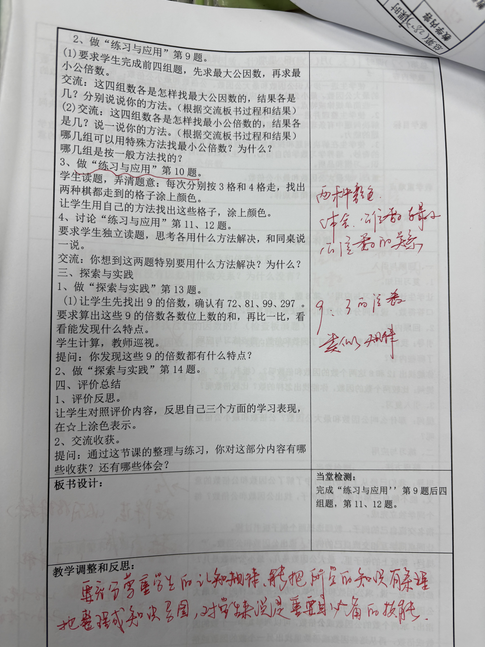 2、做“练习与应用”第9题。
(1)要求学生完成前四组题，先求最大公因数，再求最
小公倍数。
交流：这四组数各是怎样找最大公因数的，结果各是
几？分别说说你的方法。（根据交流板书过程和结果）
(2)交流：这四组数各是怎样找最小公倍数的，结果各
是几？说一说你的方法。（根据交流板书过程和结果）
哪几组可以用特殊方法找最小公倍数？为什么？
哪几组是按一般方法找的？
3、做“练习与应用”第10题。
学生读题，弄清题意：每次分别按3格和4格走，找出
两种棋都走到的格子涂上颜色。
让学生用自己的方法找出这些格子，涂上颜色。
4、讨论“练习与应用”第11、12题。
要求学生独立读题，思考各用什么方法解决，和同桌说
一说。
交流：你想到这两题特别要用什么方法解决？为什么？
三、探索与实践
1、做“探索与实践”第13题。
(1)让学生先找出9的倍数，确认有72、81、99、297 。
要求算出这些9的倍数各数位上数的和，再比一比，看
看能发现什么特点。
学生计算，教师巡视。
提问：你发现这些9的倍数都有什么特点？
2、做“探索与实践”第14题。
四、评价总结
1、评价反思。
让学生对照评价内容，反思自己三个方面的学习表现，
在☆上涂色表示。
2、交流收获。
提问：通过这节课的整理与练习，你对这部分内容有哪
些收获？还有哪些体会？
公倍数的关系
9、3的倍数
类似规律
板书设计：
当堂检测：
完成“练习与应用’’第9题后四
组题，第11、12题。
教学调整和反思：
要充分尊重学生的认知规律，能把所学的知识有条理
地整理成知识导图，对学生来说是重要且必备的技能。